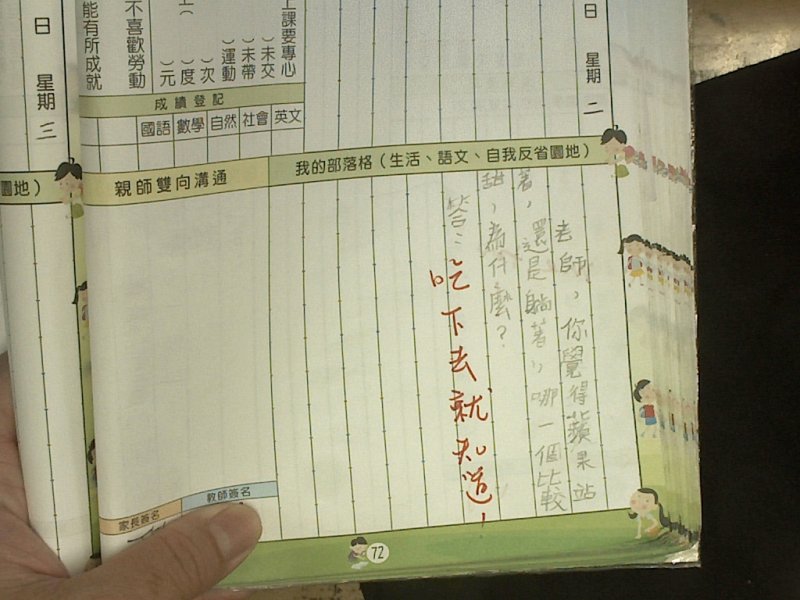 日 星期二
上課要專心
（ ）未交
（ ）未帶
（ ）運動
（ ）次
（ ）度
（ ）元
不喜歡勞動
能有所成就
成績登記
英文 社會 自然 數學 國語
我的部落格（生活、語文、自我反省園地）
老師，你覺得蘋果站
著，還是躺著，哪一個比較
甜，為什麼？
答：吃下去就知道！
親師雙向溝通
教師簽名
家長簽名
72
日 星期三
園地）